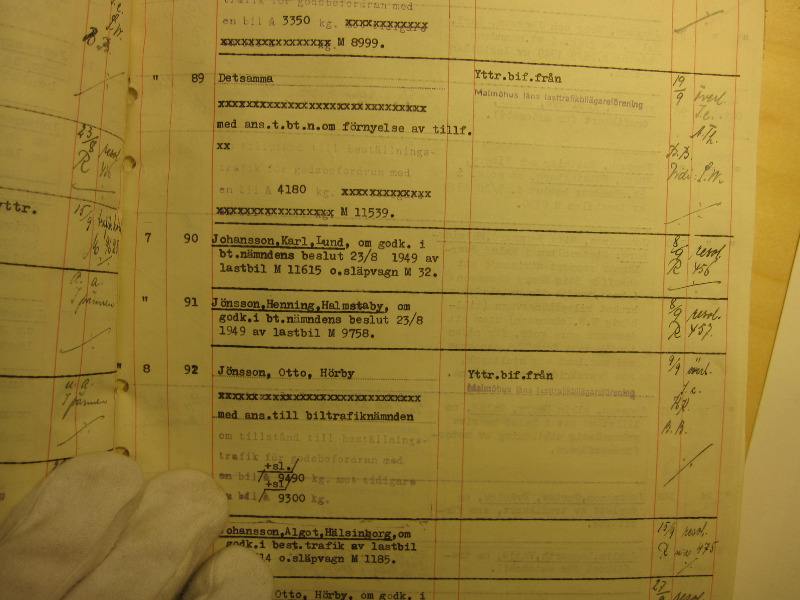 trafik för godsbefordran med
en bil å 3350 kg. xxxxxxxxxxxx
xxxxxxxxxxxxxxxx M 8999.
" 89 Detsamma Yttr.bif.från 19/9 överl.
Malmöhus läns lasttrafikbilägareförening
xxxxxxxxxxxxxxxxxxxxxxxxxxxxxx
med ans.t.bt.n.om förnyelse av tillf.
xx tillstånd till beställnings-
trafik för godsbefordran med
en bil å 4180 kg. xxxxxxxxxxxxx
xxxxxxxxxxxxxxxxx M 11539.
7 90 Johansson,Karl,Lund, om godk. i 8/9 resol.
bt.nämndens beslut 23/8 1949 av R 456
lastbil M 11615 o.släpvagn M 32.
" 91 Jönsson,Henning,Halmstaby, om 8/9 resol.
godk.i bt.nämndens beslut 23/8 R 457.
1949 av lastbil M 9758.
" 8 92 Jönsson, Otto, Hörby Yttr.bif.från 9/9 överl.
Malmöhus läns lasttrafikbilägareförening
xxxxxxxxxxxxxxxxxxxxxxxxxxxxx
med ans.till biltrafiknämnden
om tillstånd till beställnings-
trafik för godsbefordran med
+sl./
en bil å 9490 kg. mot tidigare
+sl/
9300 kg.
ohansson,Algot,Hälsingborg,om 15/9 resol.
godk.i best.trafik av lastbil R 475
14 o.släpvagn M 1185.
Otto, Hörby, om godk. i resol.
23/8 resol.
R
yttr. 15/9